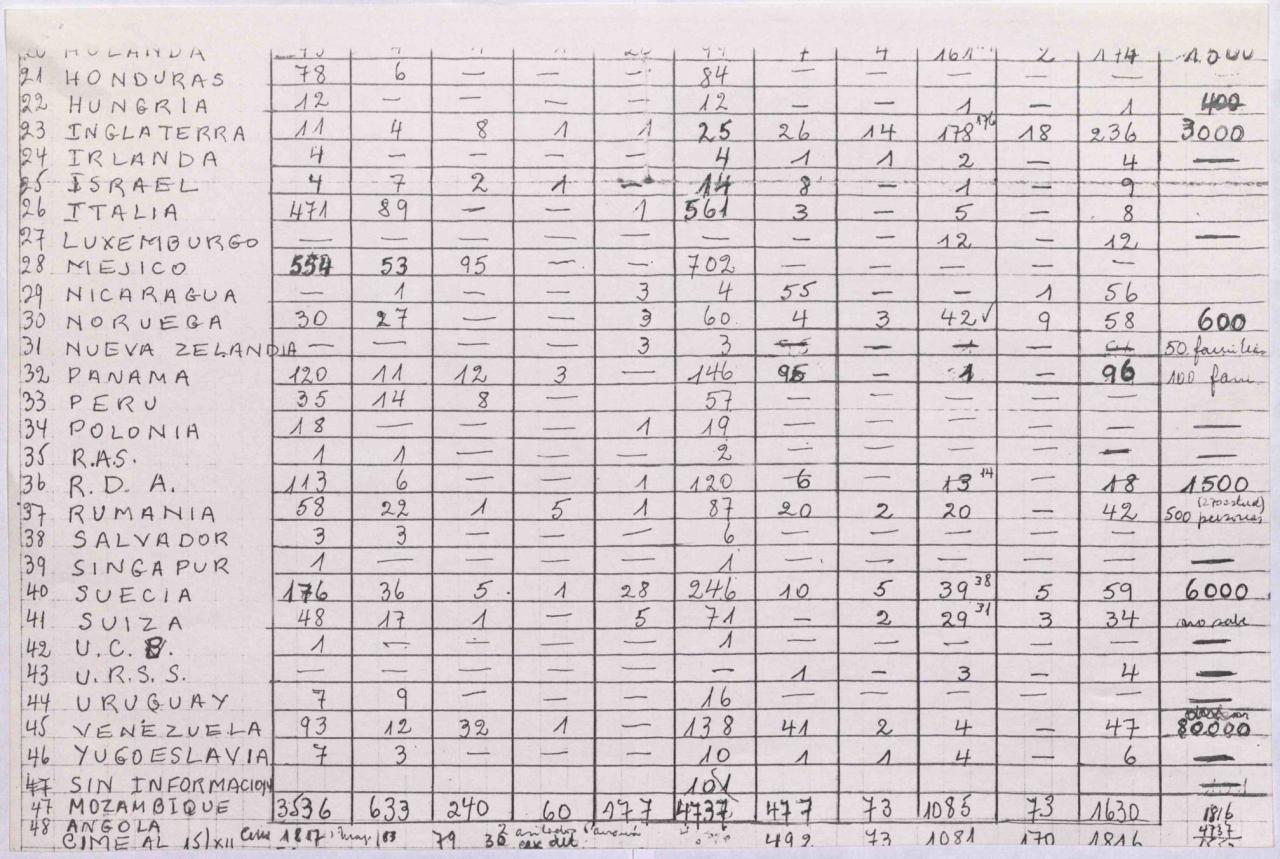 20 HOLANDA 1 4 161 2 174
21 HONDURAS 78 6 — — — 84 — — — — —
22 HUNGRIA 12 — — — — 12 — — 1 — 1 400
23 INGLATERRA 11 4 8 1 1 25 26 14 178 176 18 236 3000
24 IRLANDA 4 — — — — 4 1 1 2 — 4 —
25 ISRAEL 4 7 2 1 — 14 8 — 1 — 9
26 ITALIA 471 89 — — 1 561 3 — 5 — 8
27 LUXEMBURGO — — — — — — — — 12 — 12 —
28 MEJICO 554 53 95 — — 702 — — — — —
29 NICARAGUA — 1 — — 3 4 55 — — 1 56
30 NORUEGA 30 27 — — 3 60 4 3 42 ✓ 9 58 600
31 NUEVA ZELANDIA — — — — 3 3 — — 50 familias
32 PANAMA 120 11 12 3 — 146 95 — 1 — 96 100 fam.
33 PERU 35 14 8 — — 57 — — — — —
34 POLONIA 18 — — — 1 19 — — — — — —
35 R.A.S. 1 1 — — — 2 — — — — — —
36 R.D.A. 113 6 — — 1 120 6 — 13 14 — 18 1500
37 RUMANIA 58 22 1 5 1 87 20 2 20 — 42 500 personas
38 SALVADOR 3 3 — — — 6 — — — — —
39 SINGAPUR 1 — — — — 1 — — — — — —
40 SUECIA 176 36 5 1 28 246 10 5 39 38 5 59 6000
41 SUIZA 48 17 1 — 5 71 — 2 29 31 3 34 no sabe
42 U.C. 1 — — — — 1 — — — — — —
43 U.R.S.S. — — — — — — 1 — 3 — 4 —
44 URUGUAY 7 9 — — — 16 — — — — — —
45 VENEZUELA 93 12 32 1 — 138 41 2 4 — 47 80000
46 YUGOESLAVIA 7 3 — — — 10 1 1 4 — 6 —
47 SIN INFORMACION 101 —
47 MOZAMBIQUE 3536 633 240 60 177 4737 477 73 1085 73 1630 1816
48 ANGOLA 4737
CIME AL 15/XII 79 492 73 1081 170 1816